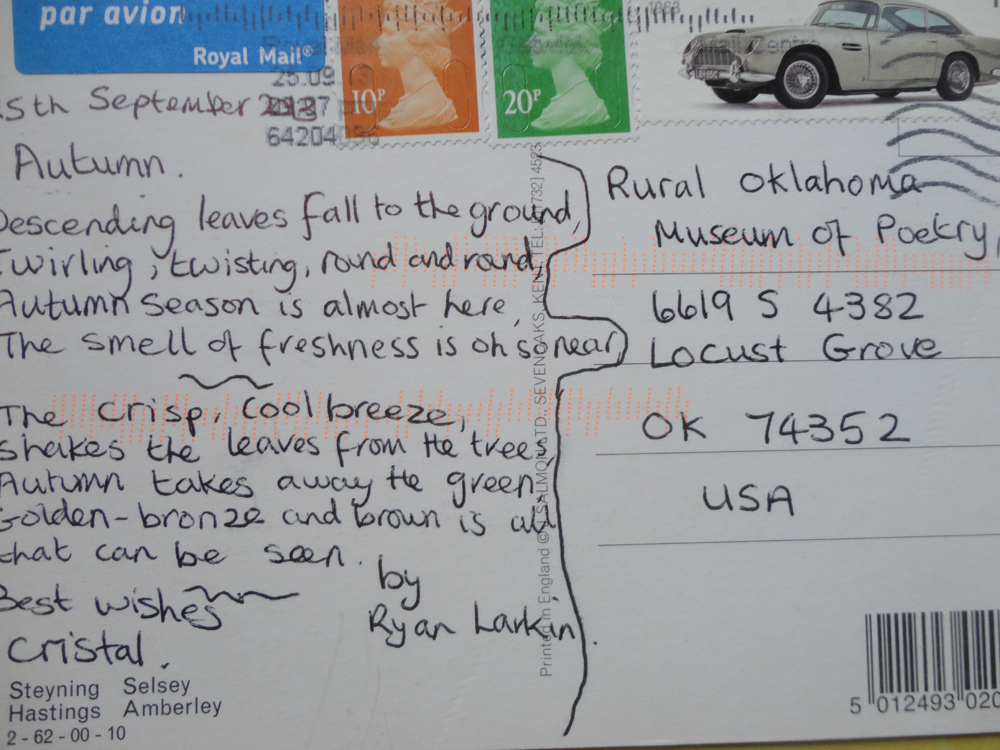 par avion
Royal Mail®
25.09
64204
10P
20P
5th September
Autumn.
Descending leaves fall to the ground,
Twirling, twisting, round and round,
Autumn season is almost here,
The smell of freshness is oh so near
The crisp, cool breeze,
shakes the leaves from the trees
Autumn takes away the green
Golden-bronze and brown is all
that can be seen.
by
Ryan Larkin.
Best wishes
Cristal.
Steyning Selsey
Hastings Amberley
2-62-00-10
Printed in England © J SALMON LTD., SEVENOAKS, KENT. TEL: 732] 452
Rural Oklahoma
Museum of Poetry,
6619 S 4382
Locust Grove
OK 74352
USA
5 012493 020